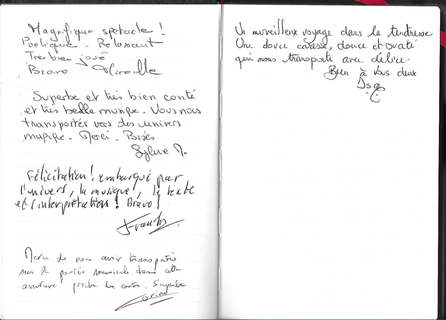 Magnifique spectacle !
Poétique - Relaxant
Tres bien joué
Bravo Mireille
Superbe et très bien conté
et très belle musique. Vous nous
transportés vers des univers
magique. Merci - Bises
Sylvie
Félicitation ! embarqué par
l'univers, la musique, le texte
et l'interprétation ! Bravo !
Merci de nous avoir transportés
sur la musicale dans cette
aventure
Un merveilleux voyage dans la tendresse
Une douce caresse, douce et ovatée
qui nous transporte avec délice.
Bien à vous deux